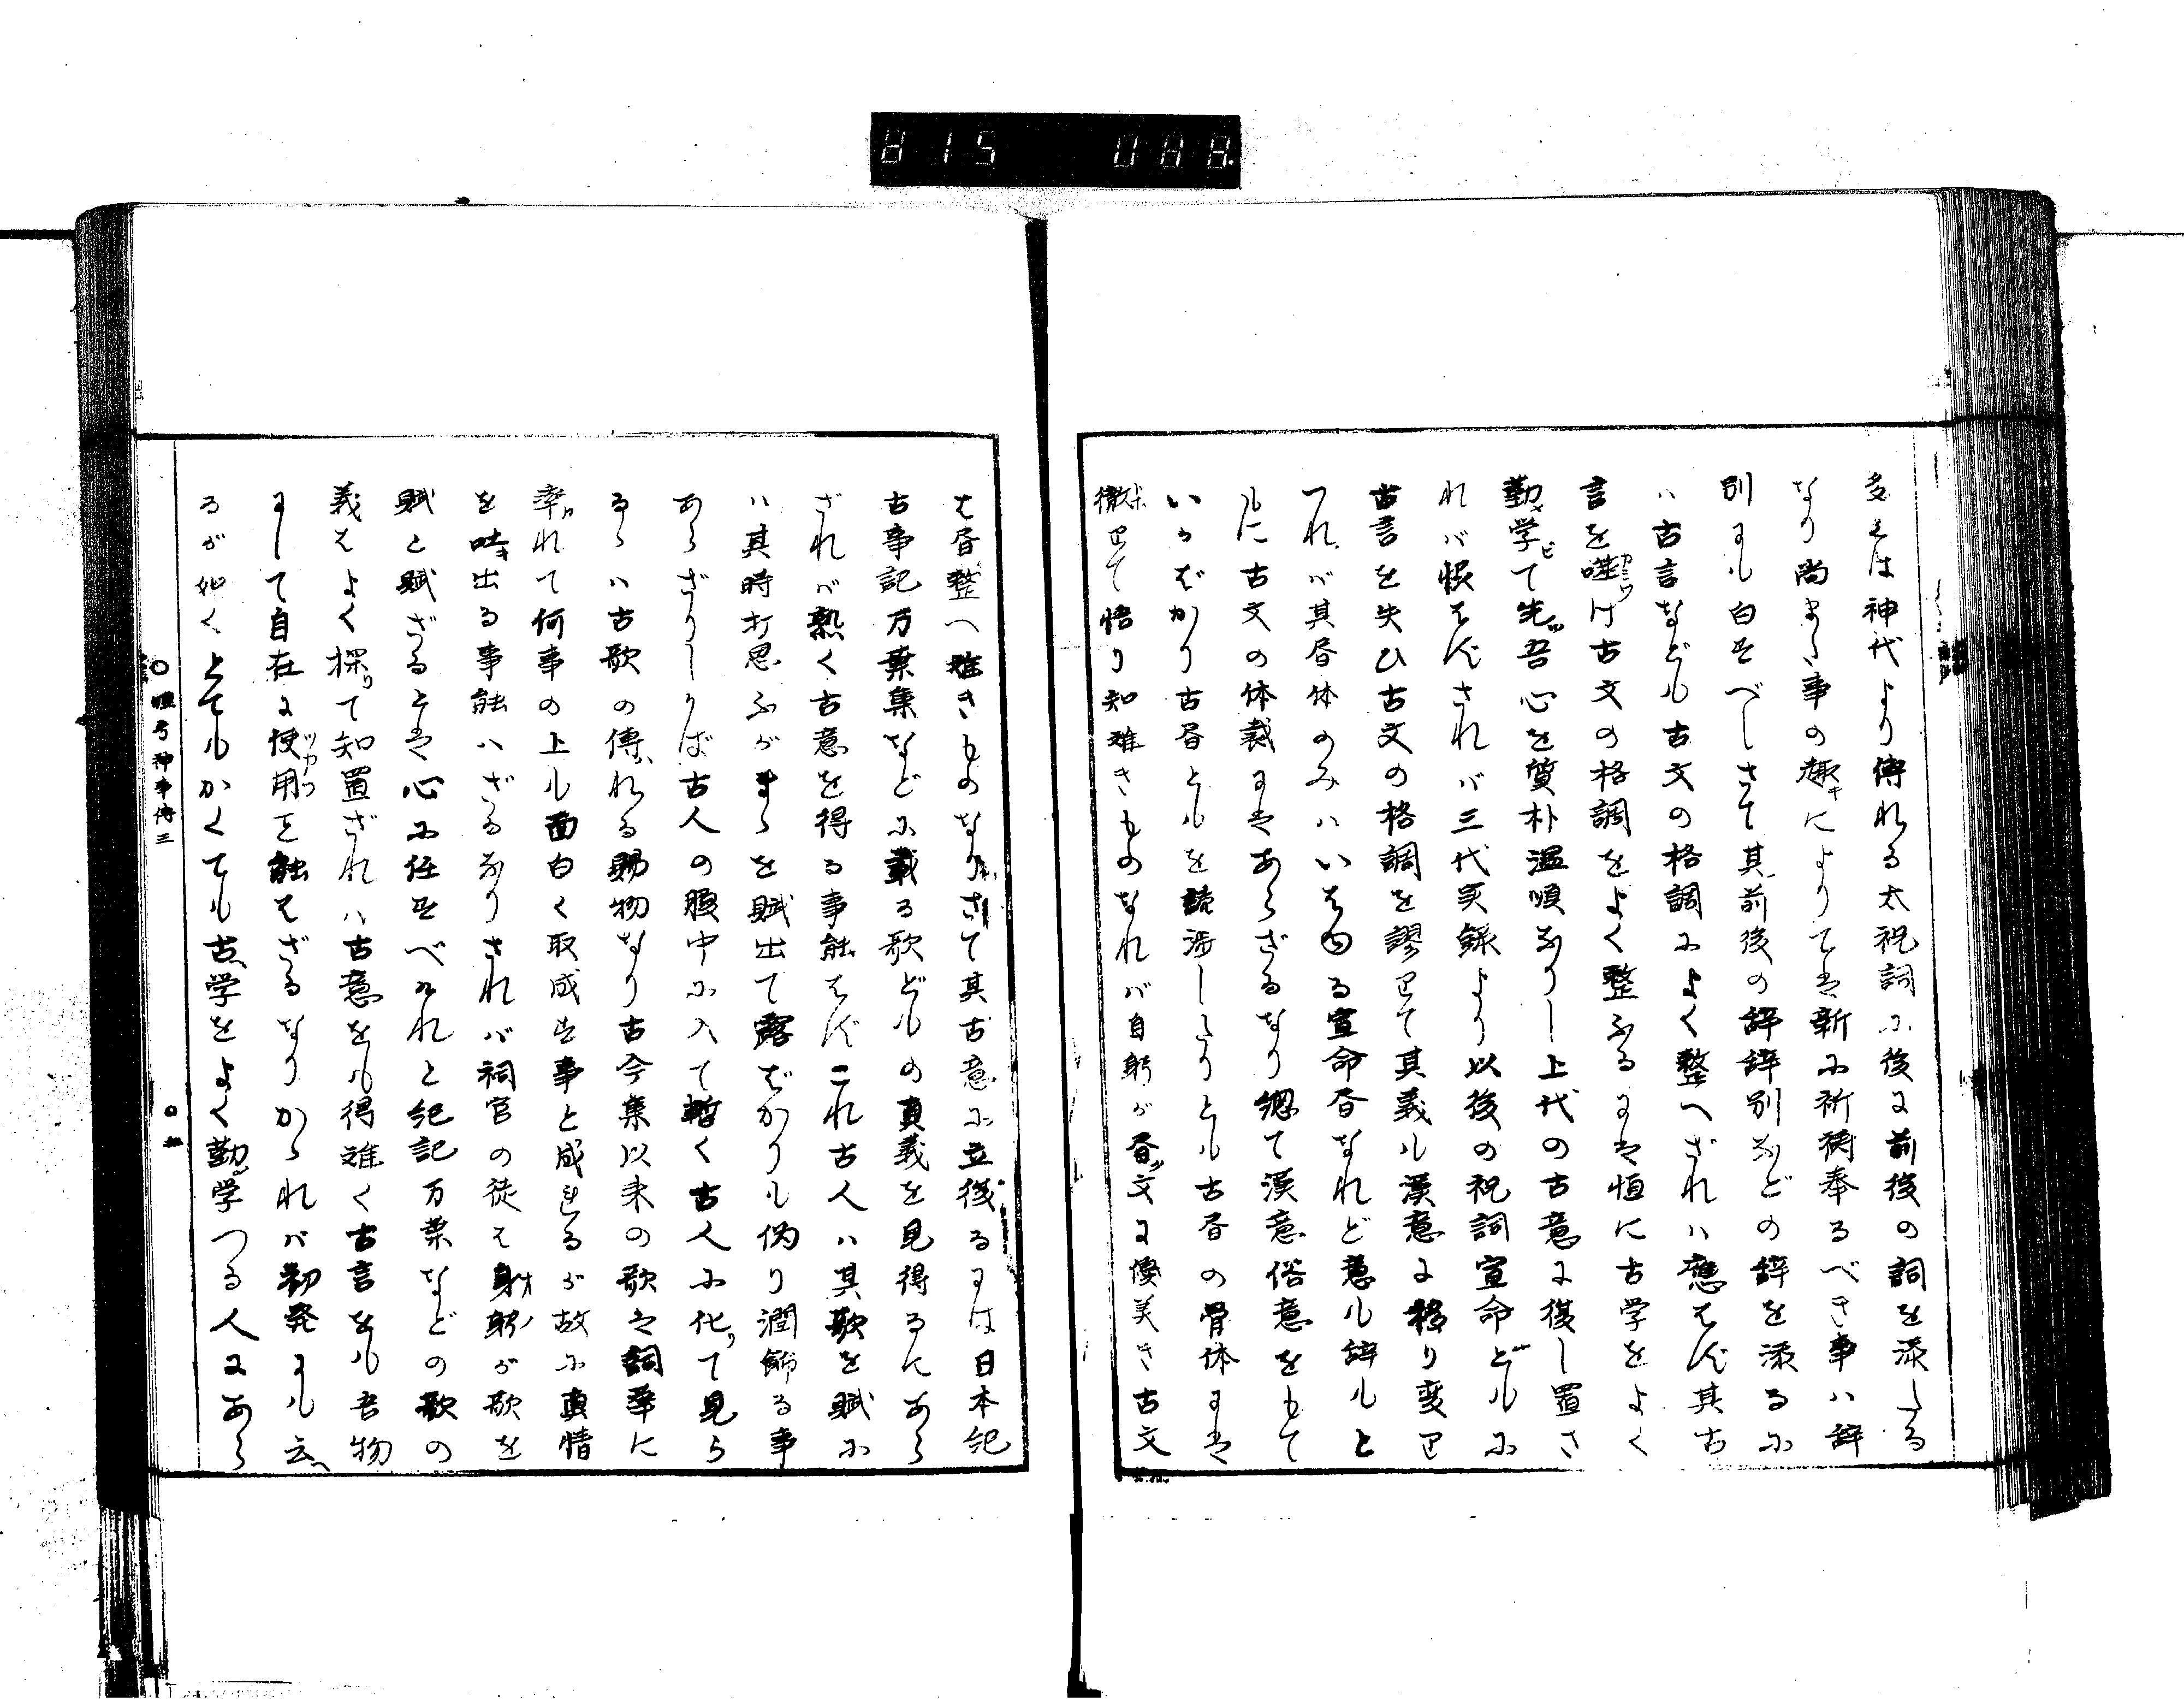 多くは神代より傳れる太祝詞に後に前後の詞を添たる
なり尚まゝ事の趣キによりては新に祈祷奉るべき事ハ辞
別にも白すべしさて其前後の辞辞別などの辞を添るに
ハ古言なども古文の格調によく整へざれハ應はず其古
言を囃け古文の格調をよく整ふるには恒に古学をよく
勤学ビて先ッ吾心を質朴温順なりし上代の古意に復し置さ
れバ恨はずされバ三代実録より以後の祝詞宣命どもに
古言を失ひ古文の格調を謬りて其義も漢意に移り変り
つれバ其昏体のみハいはゆる宣命昏なれど意も辞もと
もに古文の体裁にはあらざるなり總て漢意俗意をもて
いかばかり古昏ともを読渉したりとも古昏の骨体には
徹りて悟り知難きものなれバ自躬が昏文に優美き古文
は昏整へ難きものなりさて其古意に立復るには日本紀
古事記万葉集などに載る歌どもの真義を見得るにあら
ざれバ熟く古意を得る事能はずこれ古人ハ其歌を賦に
ハ其時打思ふがまゝを賦出て露ばかりも偽り潤飾る事
あらざりしかば古人の腹中に入て暫く古人に化て見ら
るゝハ古歌の傳れる賜物なり古今集以来の歌は詞華に
率れて何事の上も面白く取成す事と成きるが故に真情
を吐出る事能ハざるなりされバ祠官の徒は身躬が歌を
賦と賦ざるとは心に任すべけれと紀記万葉などの歌の
義はよく探りて知置ざれハ古意をも得難く古言をも吾物
にして自在に使用ツカフこと能はざるなりかゝれバ初発にも云
るが如くとてもかくても古学をよく勤学つる人にあら
○ 神事傳三